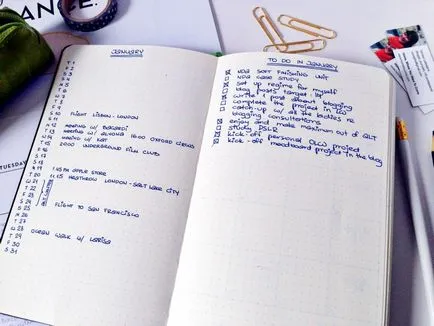 JANUARY
T 1
F 2
S 3
S 4
M 5
T 6
W 7
T 8
F 9
S 10 FLIGHT LISBON - LONDON
S 11
M 12 MEETING W/
T 13 MEETING W/ ALJONA 16:00 OXFORD CIRCUS
W 14 MEETING W/ KAT
T 15 2000 UNDERGROUND FILM CLUB
F 16
S 17
S 18
M 19 1:45 PM APPLE STORE
T 20 11:15 HEATHROW LONDON - SALT LAKE CITY
W 21
T 22
F 23
S 24
S 25 FLIGHT TO SAN FRANCISCO
M 26
T 27
W 28 OCEAN WALK W/ LARISA
T 29
F 30
S 31
TO DO IN JANUARY
NDA SOFT FINISHING UNIT
NDA CASE STUDY
set up regime for myself
blog posts target list
write 1 post about blogging
complete the project in
catch-up w/ all the ladies re
blogging consultations
enjoy and make maximum out of
study DSLR
kick-off personal project
kick-off moodboard project in the blog
ANCE.
TUESDAY